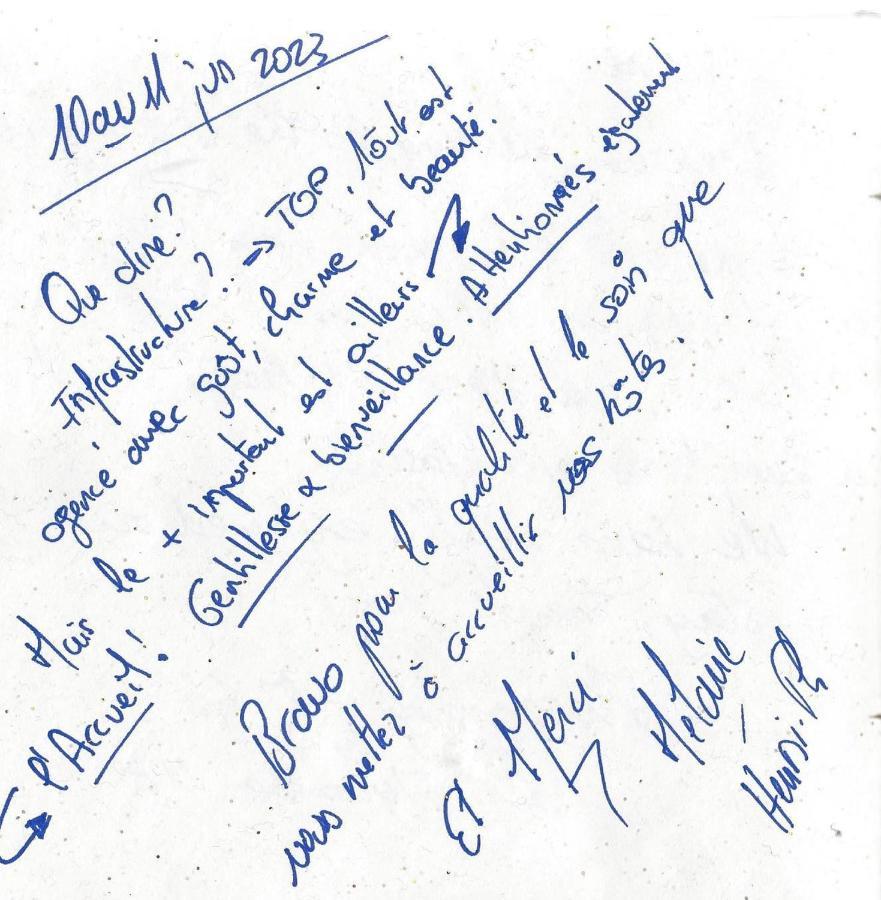 10 au 11 juin 2023
Que dire?
Infrastructure? → TOP, tout est
agencé avec goût, charme et beauté.
Mais le + important est ailleurs →
↳ l'Accueil! Gentillesse & bienveillance. Attentionnés également
Bravo pour la qualité et le soin que
vous mettez à accueillir vos hôtes.
Et Merci
Mélanie
Henri-Ph